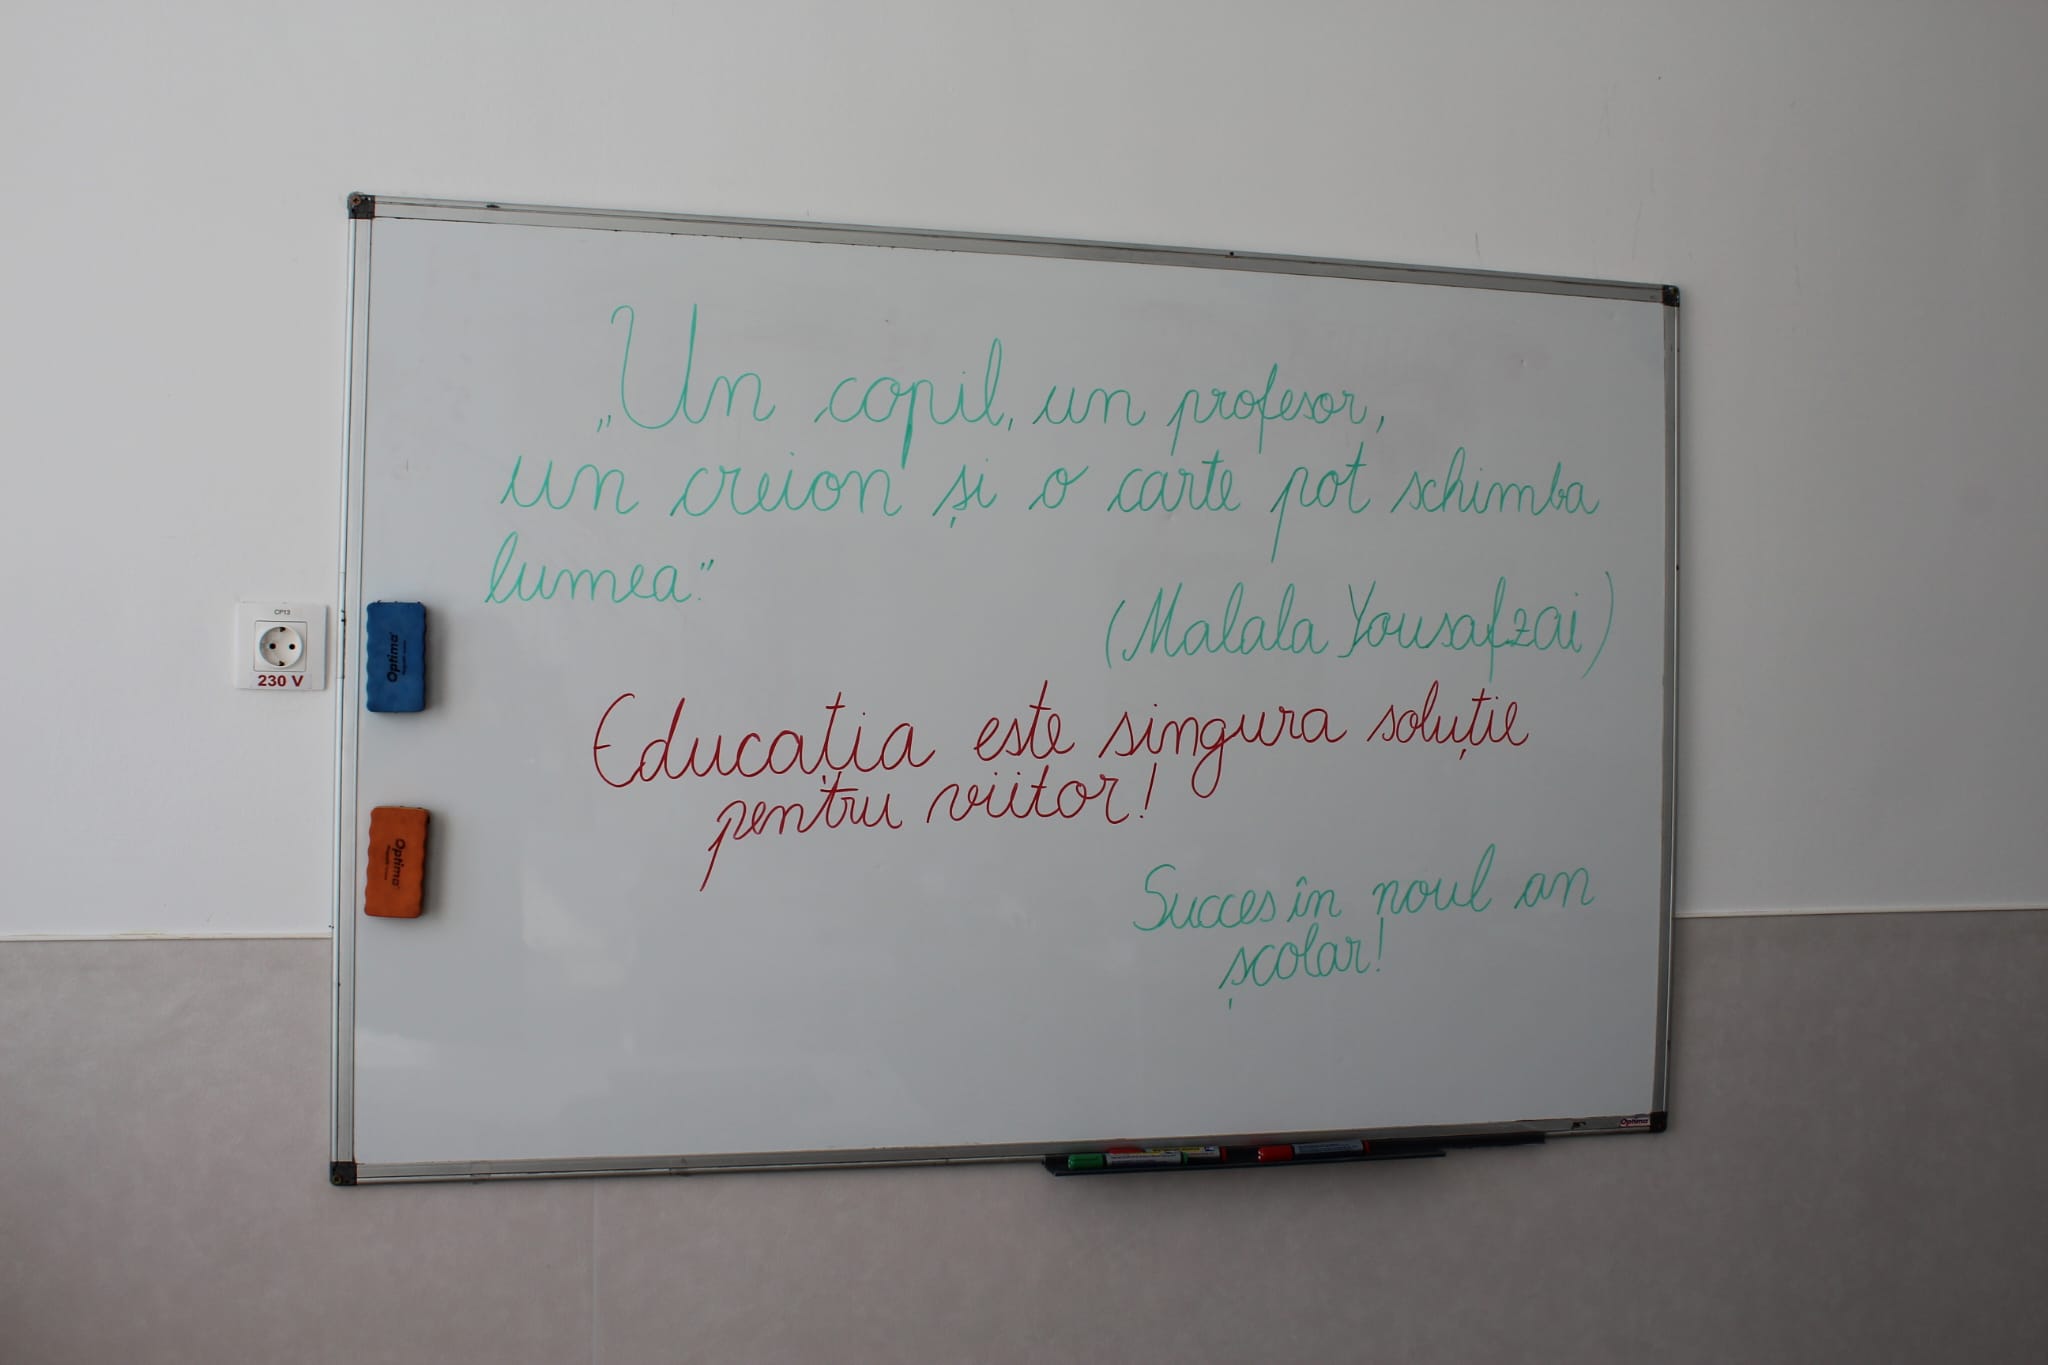 „Un copil, un profesor,
un creion și o carte pot schimba
lumea."
(Malala Yousafzai)
Educația este singura soluție
pentru viitor!
Succes în noul an
școlar!
CP13
230 V
Optima
Optima
Optima